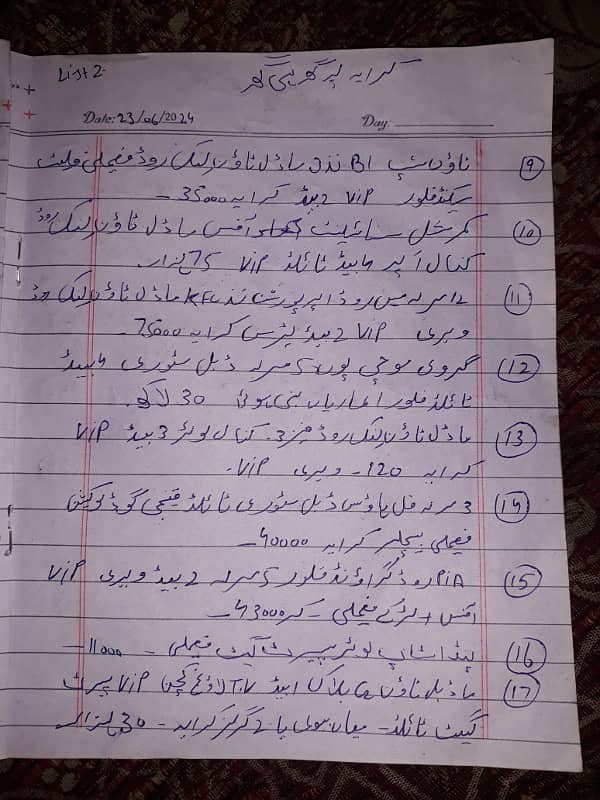 List 2.
کرایہ پر گھر ہی گھر
Date: 23/06/2024 Day:
9 ٹاؤن شپ B1 نزد ماڈل ٹاؤن لنک روڈ فیملی فلیٹ
سیکنڈ فلور VIP 2 بیڈ کرایہ 35000
10 کمرشل سائیٹ آفس ماڈل ٹاؤن لنک روڈ
کنال اپر 4 بیڈ ٹائلڈ VIP 75 ہزار
11 12 مرلہ مین روڈ اپر پورشن نزد KFC ماڈل ٹاؤن لنک روڈ
ویری VIP 2 بیڈ ٹیرس کرایہ 75000
12 گروی موچی پورہ 5 مرلہ ڈبل سٹوری 4 بیڈ
ٹائلڈ فلور الماریاں بنی ہوئی 30 لاکھ
13 ماڈل ٹاؤن لنک روڈ فیز 3. کنال لوئر 3 بیڈ VIP
کرایہ 120 - ویری VIP.
14 3 مرلہ فل ہاؤس ڈبل سٹوری ٹائلڈ قینچی گوڈ لوکیشن
فیملی بیچلر کرایہ 40000
15 PIA روڈ گراؤنڈ فلور 5 مرلہ 2 بیڈ ویری VIP
آفس + لڑکے فیملی - کر 43000
16 پنڈ سٹاپ لوئر سیپرٹ گیٹ فیملی - 11000
17 ماڈل ٹاؤن Q بلاک 1 بیڈ T.V لاؤنج کچن VIP سیپرٹ
گیٹ ٹائلڈ - میاں بیوی یا 2 گرلز کرایہ - 30 ہزار